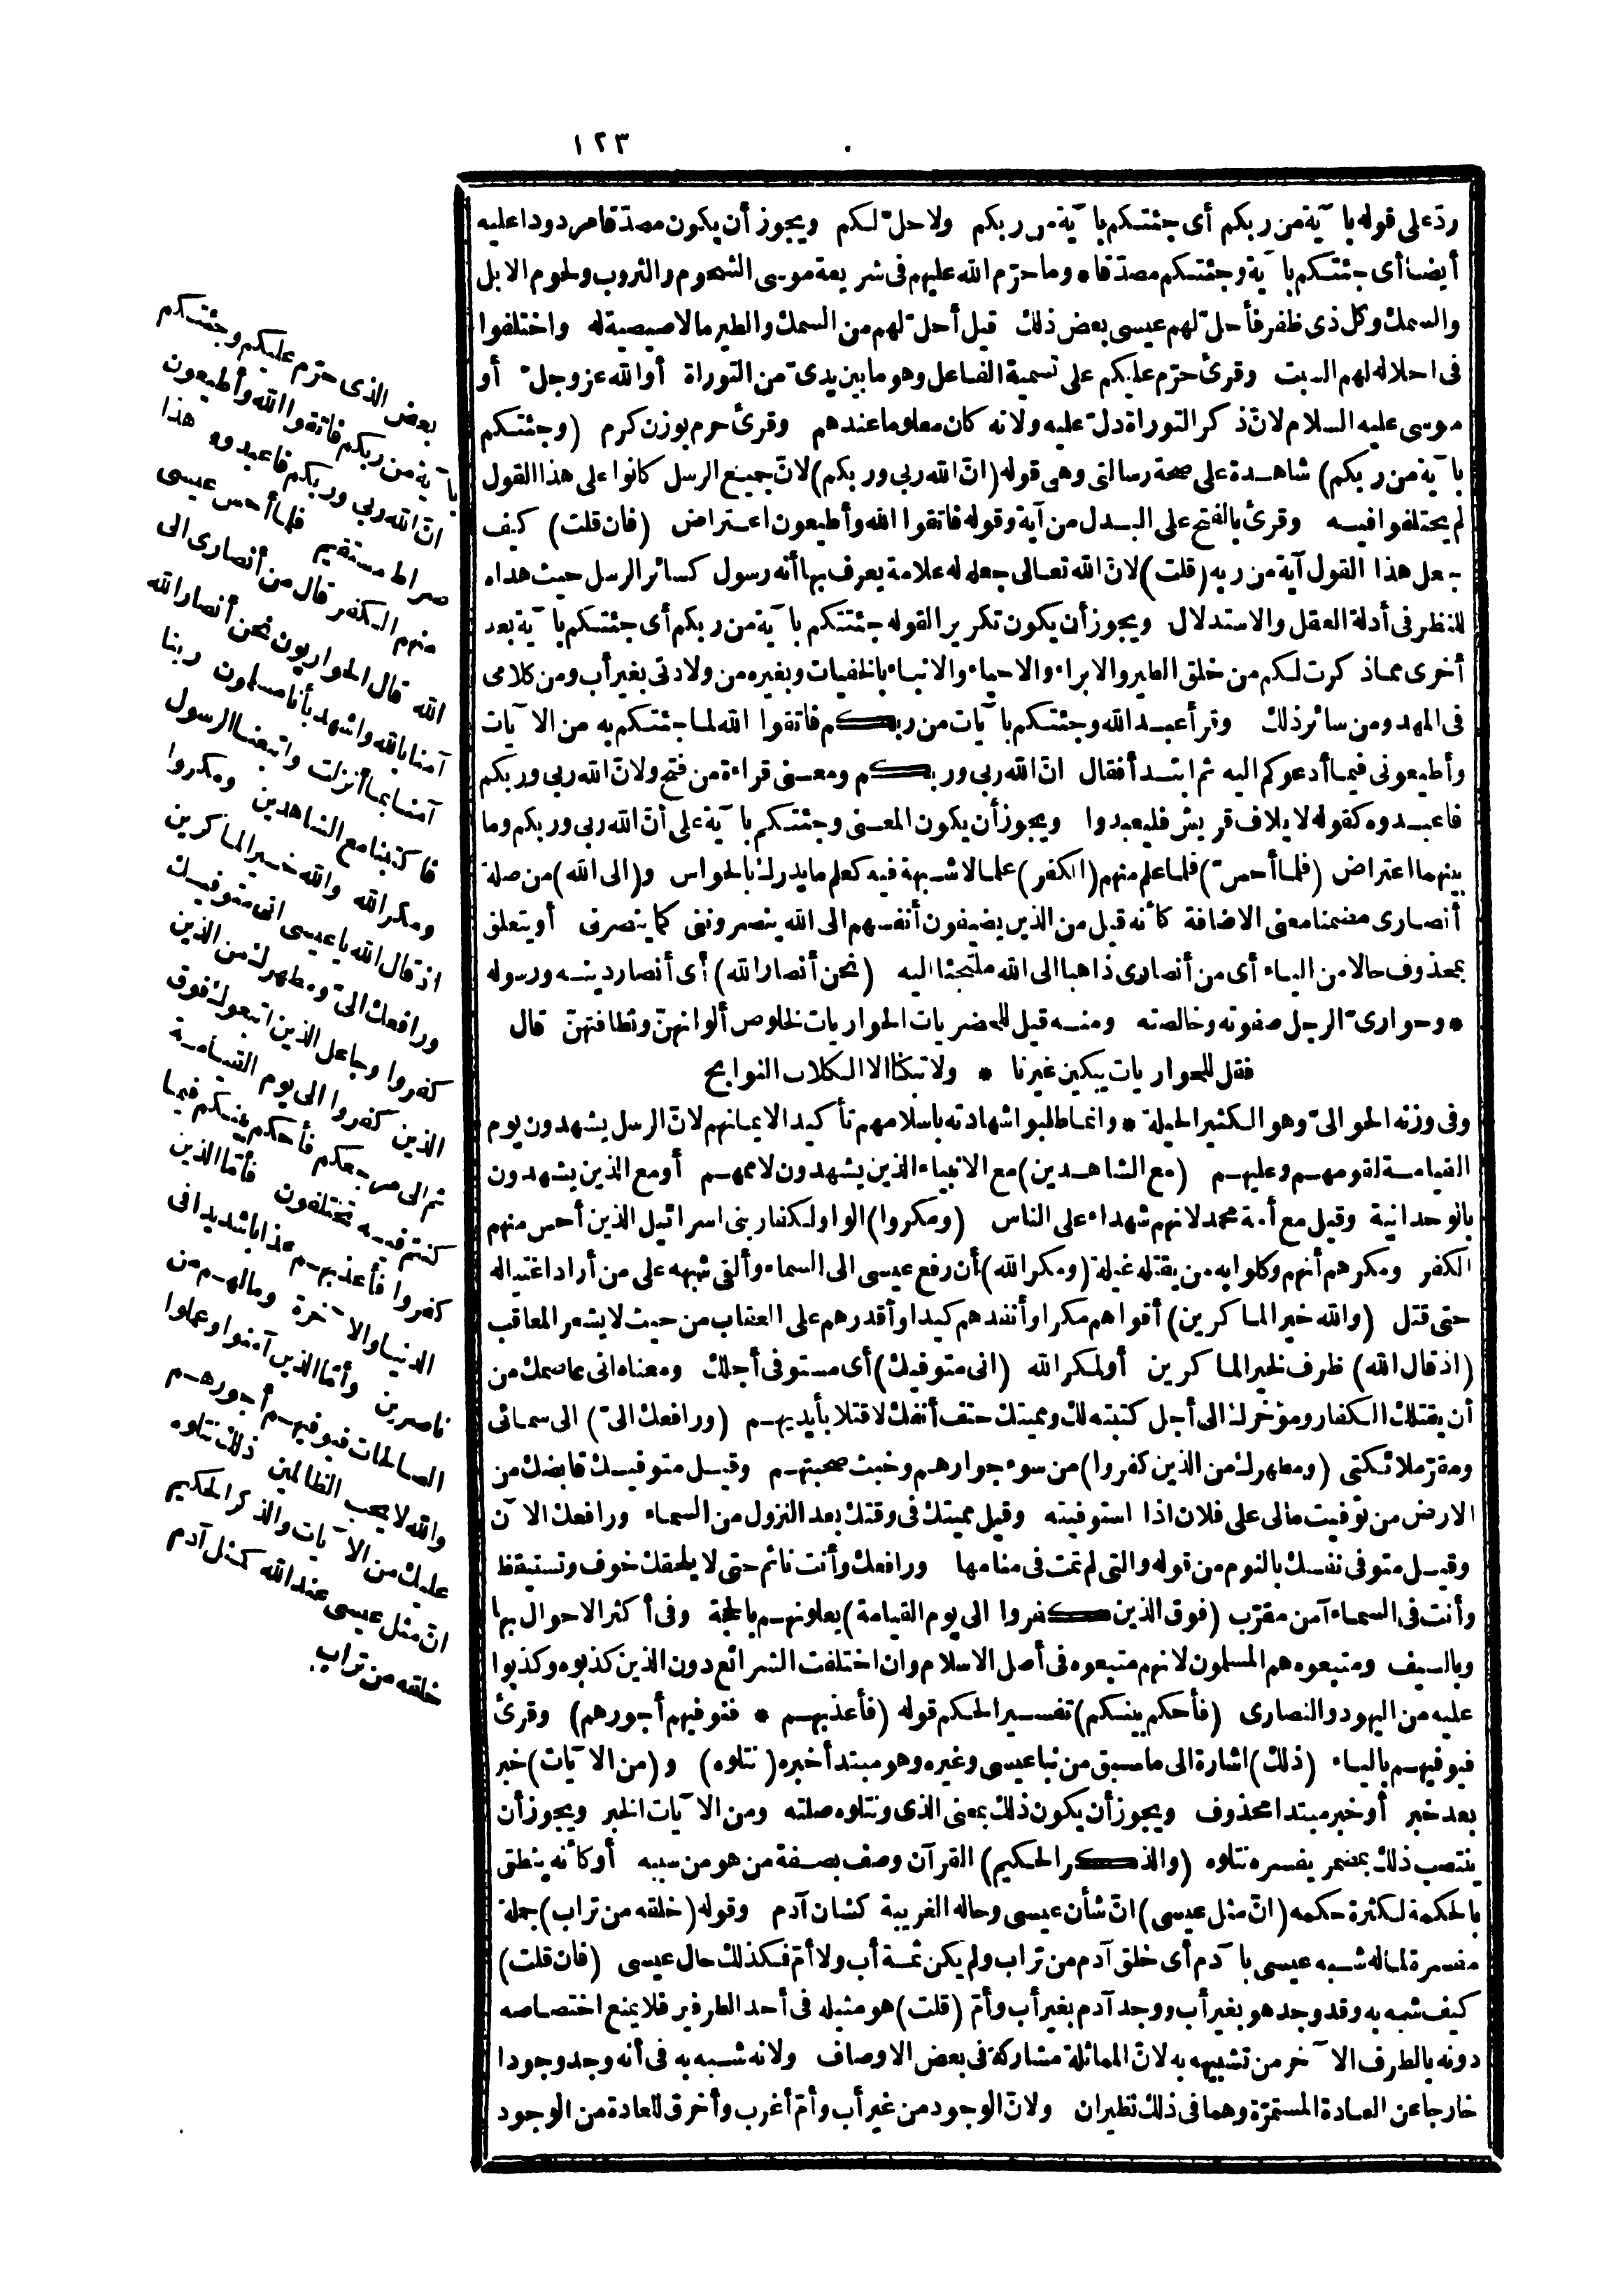 ١٢٣
ردّ على قوله بآية من ربكم أى جئتكم بآية من ربكم ولاحلّ لكم ويجوز أن يكون مصدّقا مردودا عليه
أيضا أى جئتكم بآية وجئتكم مصدّقا * وما حرّم الله عليهم فى شريعة موسى الشحوم والثروب ولحوم الابل
والسمك وكل ذى ظفر فأحلّ لهم عيسى بعض ذلك قيل أحلّ لهم من السمك والطير مالا صيصية له واختلفوا
فى احلاله لهم السبت وقرئ حرّم عليكم على تسمية الفاعل وهو ما بين يدىّ من التوراة أو الله عز وجلّ أو
موسى عليه السلام لانّ ذكر التوراة دلّ عليه ولانه كان معلوما عندهم وقرئ حرم بوزن كرم (وجئتكم
بآية من ربكم) شاهدة على صحة رسالتى وهى قوله (انّ الله ربى وربكم) لانّ جميع الرسل كانوا على هذا القول
لم يختلفوا فيه وقرئ بالفتح على البدل من آية وقوله فاتقوا الله وأطيعون اعتراض (فان قلت) كيف
جعل هذا القول آية من ربه (قلت) لانّ الله تعالى جعله له علامة يعرف بها أنه رسول كسائر الرسل حيث هداه
للنظر فى أدلة العقل والاستدلال ويجوز أن يكون تكرير القوله جئتكم بآية من ربكم أى جئتكم بآية بعد
أخرى مما ذكرت لكم من خلق الطير والابراء والاحياء والانباء بالخفيات وبغيره من ولادتى بغير أب ومن كلامى
فى المهد ومن سائر ذلك وقرأ عبد الله وجئتكم بآيات من ربكم فاتقوا الله لما جئتكم به من الآيات
وأطيعونى فيما أدعوكم اليه ثم ابتدأ فقال انّ الله ربى وربكم ومعنى قراءة من فتح ولانّ الله ربى وربكم
فاعبدوه كقوله لايلاف قريش فليعبدوا ويجوز أن يكون المعنى وجئتكم بآية على أنّ الله ربى وربكم وما
بينهما اعتراض (فلما أحسّ) فلما علم منهم (الكفر) علما لا شبهة فيه كعلم ما يدرك بالحواس و(الى الله) من صلة
أنصارى مضمنا معنى الاضافة كأنه قيل من الذين يضيفون أنفسهم الى الله ينصروننى كما ينصرنى أو يتعلق
بمحذوف حالا من الياء أى من أنصارى ذاهبا الى الله ملتجئا اليه (نحن أنصار الله) أى أنصار دينه ورسوله
* وحوارىّ الرجل صفوته وخالصته ومنه قيل للحضريات الحواريات لخلوص ألوانهنّ ونظافتهنّ قال
فقل للحواريات يبكين غيرنا * ولا تبكنا الا الكلاب النوابح
وفى وزنه الحوالىّ وهو الكثير الحيلة * وانما طلبوا شهادته باسلامهم تأكيدا لايمانهم لانّ الرسل يشهدون يوم
القيامة لقومهم وعليهم (مع الشاهدين) مع الانبياء الذين يشهدون لاممهم أو مع الذين يشهدون
بالوحدانية وقيل مع أمة محمد لانهم شهداء على الناس (ومكروا) الواو لكفار بنى اسرائيل الذين أحس منهم
الكفر ومكرهم أنهم وكلوا به من يقتله غيلة (ومكر الله) أن رفع عيسى الى السماء وألقى شبهه على من أراد اغتياله
حتى قتل (والله خير الماكرين) أقواهم مكرا وأنفدهم كيدا وأقدرهم على العقاب من حيث لا يشعر المعاقب
(اذ قال الله) ظرف لخير الماكرين أو لمكر الله (انى متوفيك) أى مستوفى أجلك ومعناه انى عاصمك من
أن يقتلك الكفار ومؤخرك الى أجل كتبته لك ومميتك حتف أنفك لا قتلا بأيديهم (ورافعك الىّ) الى سمائى
ومقرّ ملائكتى (ومطهرك من الذين كفروا) من سوء جوارهم وخبث صحبتهم وقيل متوفيك قابضك من
الارض من توفيت مالى على فلان اذا استوفيته وقيل مميتك فى وقتك بعد النزول من السماء ورافعك الآن
وقيل متوفى نفسك بالنوم من قوله والتى لم تمت فى منامها ورافعك وأنت نائم حتى لا يلحقك خوف وتستيقظ
وأنت فى السماء آمن مقرّب (فوق الذين كفروا الى يوم القيامة) يعلونهم بالحجة وفى أكثر الاحوال بها
وبالسيف ومتبعوه هم المسلمون لانهم متبعوه فى أصل الاسلام وان اختلفت الشرائع دون الذين كذبوه وكذبوا
عليه من اليهود والنصارى (فأحكم بينكم) تفسير الحكم قوله (فأعذبهم * فنوفيهم أجورهم) وقرئ
فيوفيهم بالياء (ذلك) اشارة الى ما سبق من نبا عيسى وغيره وهو مبتدأ خبره (نتلوه) و (من الآيات) خبر
بعد خبر أو خبر مبتدا محذوف ويجوز أن يكون ذلك بمعنى الذى ونتلوه صلته ومن الآيات الخبر ويجوز أن
ينتصب ذلك بمضمر يفسره نتلوه (والذكر الحكيم) القرآن وصف بصفة من هو من سببه أو كأنه ينطق
بالحكمة لكثرة حكمه (انّ مثل عيسى) انّ شأن عيسى وحاله الغريبة كشان آدم وقوله (خلقه من تراب) جملة
مفسرة لماله شبه عيسى بآدم أى خلق آدم من تراب ولم يكن ثمة أب ولا أمّ فكذلك حال عيسى (فان قلت)
كيف شبه به وقد وجد هو بغير أب ووجد آدم بغير أب وأمّ (قلت) هو مثيله فى أحد الطرفين فلا يمنع اختصاصه
دونه بالطرف الآخر من تشبيهه به لانّ المماثلة مشاركة فى بعض الاوصاف ولانه شبه به فى أنه وجد وجودا
خارجا عن العادة المستمرّة وهما فى ذلك نظيران ولانّ الوجود من غير أب وأمّ أغرب وأخرق للعادة من الوجود
بعض الذى حرّم عليكم وجئتكم
بآية من ربكم فاتقوا الله وأطيعون
انّ الله ربى وربكم فاعبدوه هذا
صراط مستقيم فلما أحس عيسى
منهم الكفر قال من أنصارى الى
الله قال الحواريون نحن أنصار الله
آمنا بالله واشهد بأنا مسلمون ربنا
آمنا بما أنزلت واتبعنا الرسول
فاكتبنا مع الشاهدين ومكروا
ومكر الله والله خير الماكرين
اذ قال الله يا عيسى انى متوفيك
ورافعك الىّ ومطهرك من الذين
كفروا وجاعل الذين اتبعوك فوق
الذين كفروا الى يوم القيامة
ثم الى مرجعكم فأحكم بينكم فيما
كنتم فيه تختلفون فأمّا الذين
كفروا فأعذبهم عذابا شديدا فى
الدنيا والآخرة ومالهم من
ناصرين وأمّا الذين آمنوا وعملوا
الصالحات فيوفيهم أجورهم
والله لا يحب الظالمين ذلك نتلوه
عليك من الآيات والذكر الحكيم
انّ مثل عيسى عند الله كمثل آدم
خلقه من تراب